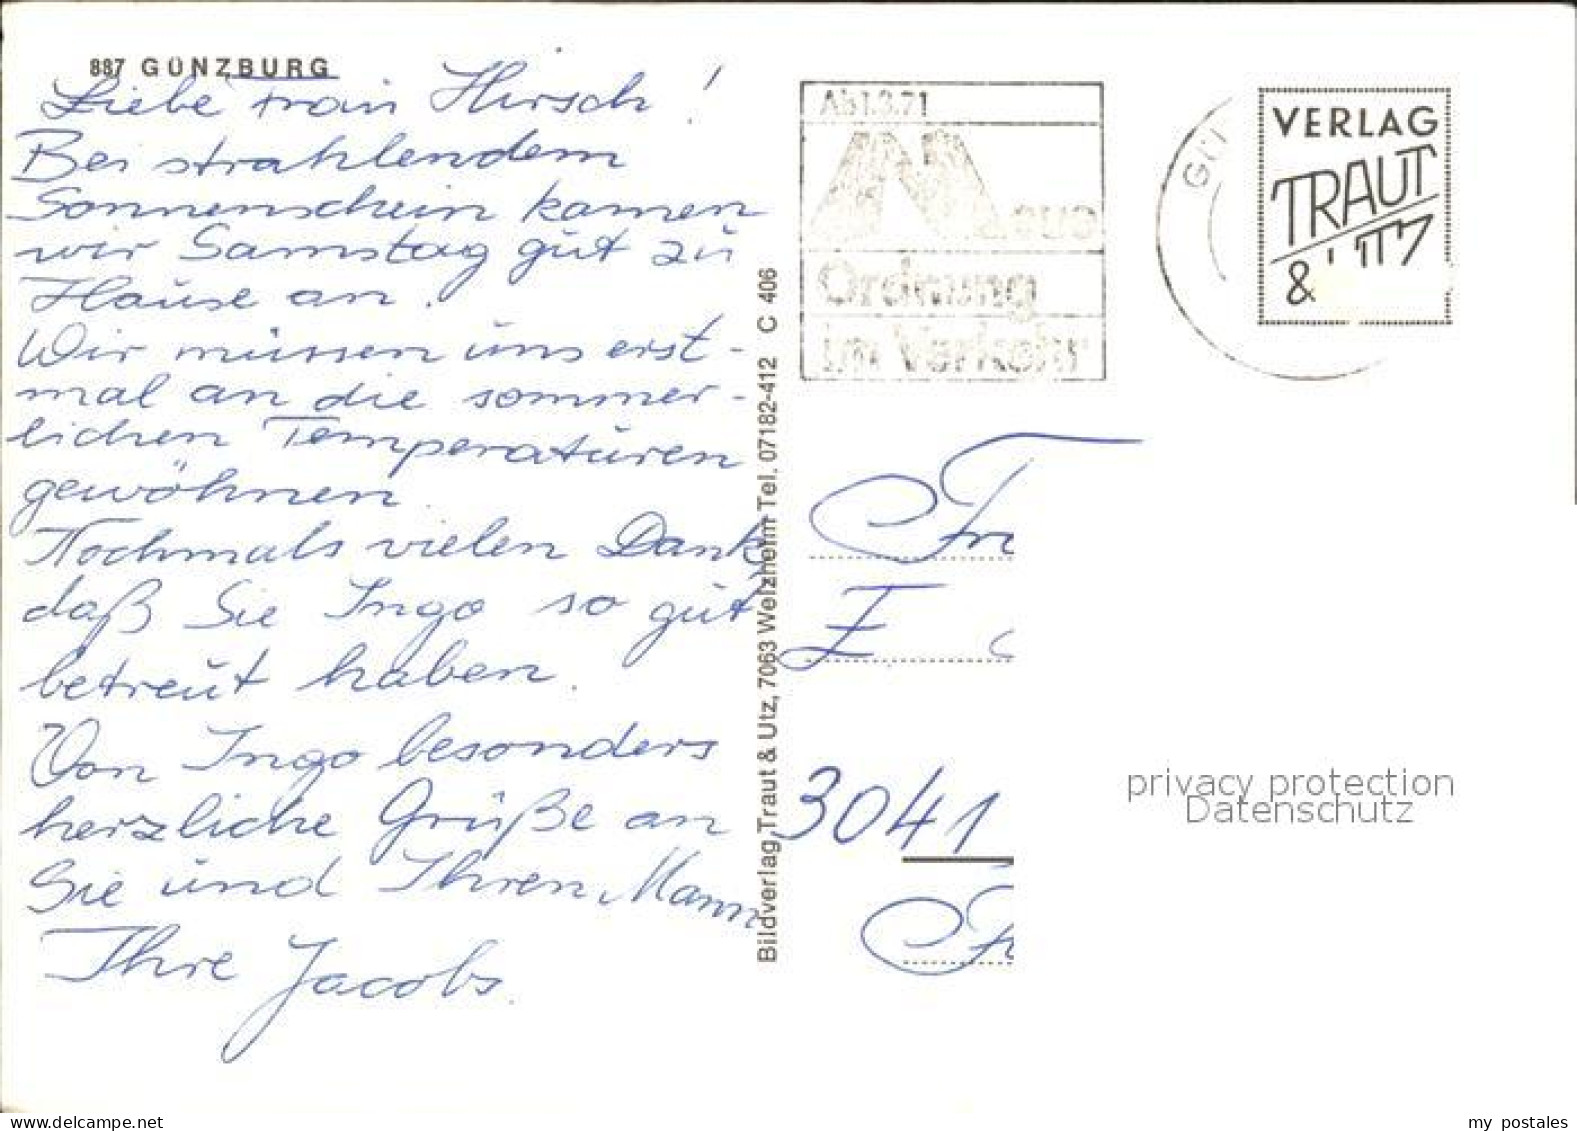 887 GÜNZBURG
Liebe Frau Hirsch!
Bei strahlendem
Sonnenschein kamen
wir Samstag gut zu
Hause an.
Wir müssen uns erst-
mal an die sommer-
lichen Temperaturen
gewöhnen.
Nochmals vielen Dank,
daß Sie Ingo so gut
betreut haben.
Von Ingo besonders
herzliche Grüße an
Sie und Ihren Mann
Ihre Jacobs.
Bildverlag Traut & Utz, 7063 Welzheim Tel. 07182-412 C 406
Ab 1.3.71
Neue
Ordnung
im Verkehr
VERLAG
TRAUT
& UTZ
3041
privacy protection
Datenschutz
my postales